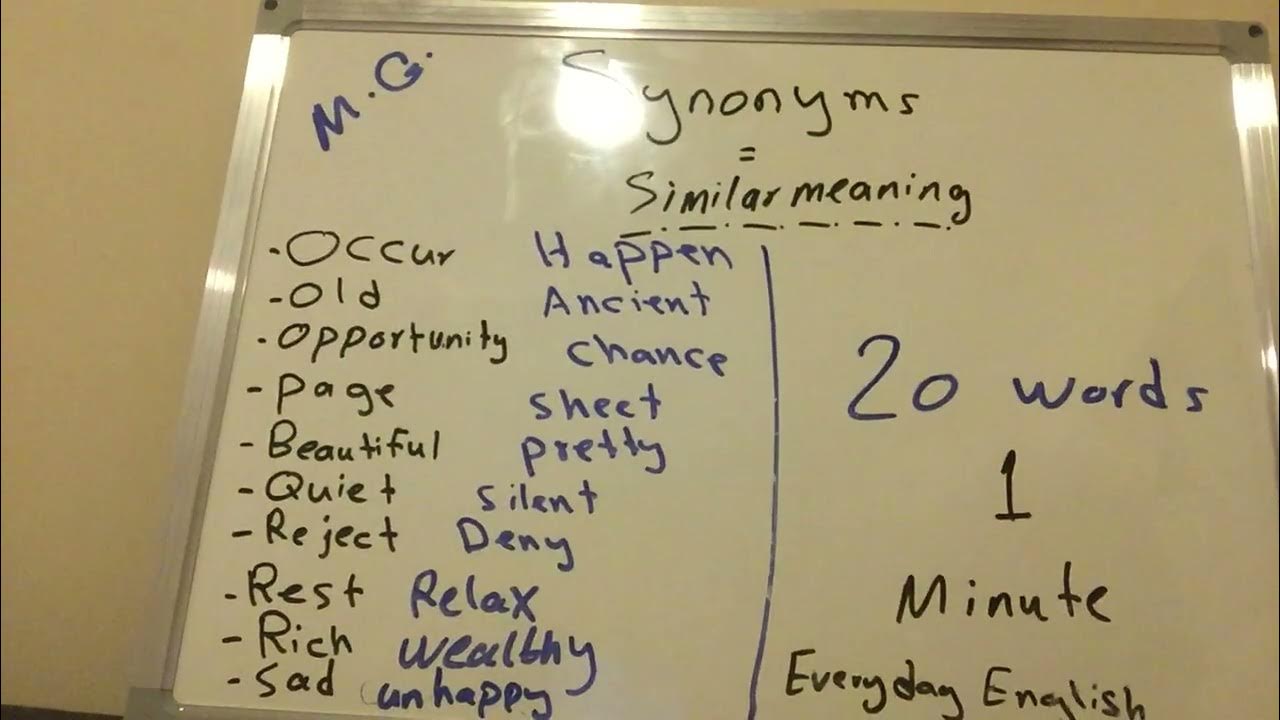 M.G.
Synonyms
=
Similar meaning
- Occur Happen
- Old Ancient
- Opportunity chance
- page sheet
- Beautiful pretty
- Quiet silent
- Reject Deny
- Rest Relax
- Rich wealthy
- Sad unhappy
20 words
1
Minute
Everyday English